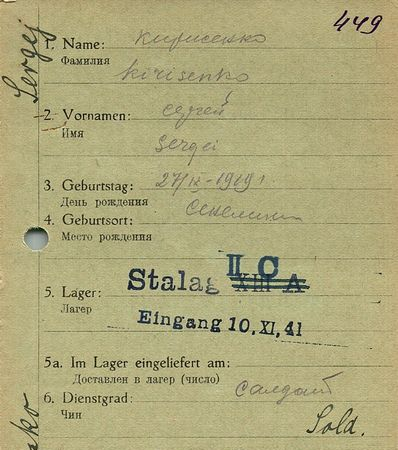 449
Sergej
1. Name: Кирисенко
Фамилия
Kirisenko
2. Vornamen: Сергей
Имя
Sergei
3. Geburtstag: 27/IX-1919 г
День рождения
4. Geburtsort:
Место рождения
Stalag II C XIII A
5. Lager:
Лагерь
Eingang 10. XI. 41
5a. Im Lager eingeliefert am:
Доставлен в лагерь (число)
6. Dienstgrad: Салдат
Чин
Sold.